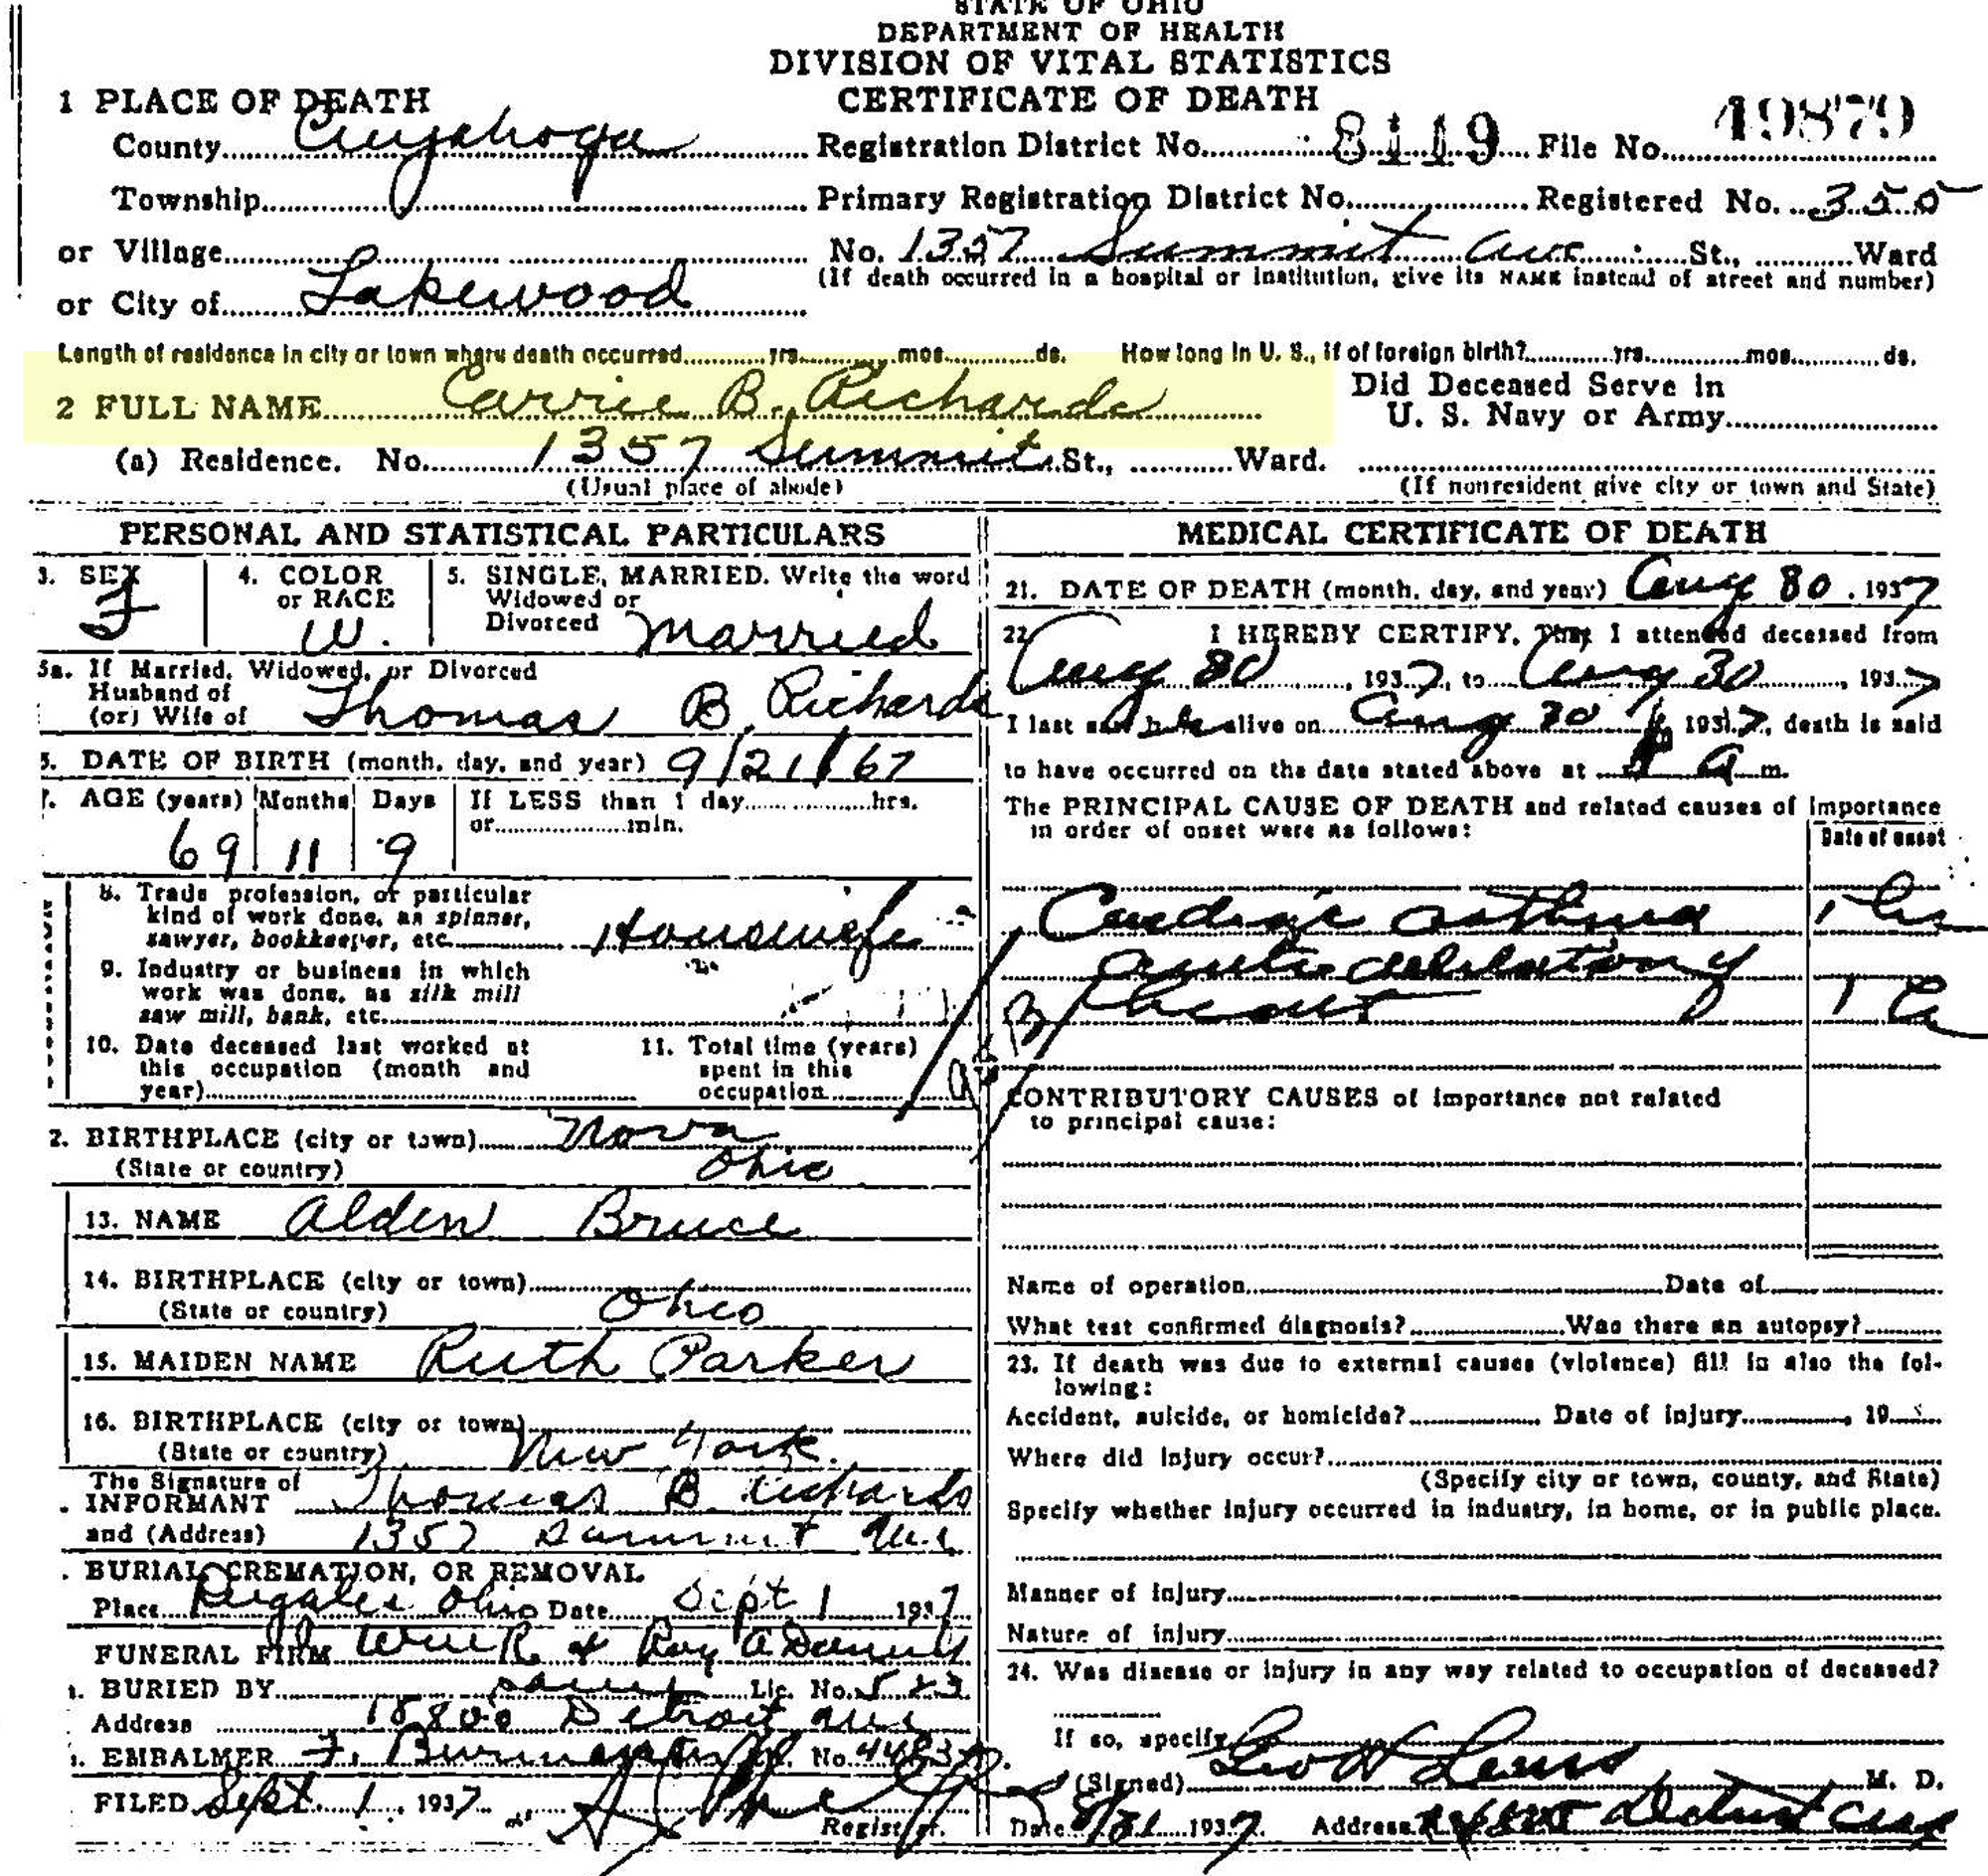 STATE OF OHIO
DEPARTMENT OF HEALTH
DIVISION OF VITAL STATISTICS
CERTIFICATE OF DEATH
1 PLACE OF DEATH
County Cuyahoga Registration District No. 8119 File No. 49879
Township Primary Registration District No. Registered No. 355
or Village No. 1357 Summit Ave St., Ward
(If death occurred in a hospital or institution, give its NAME instead of street and number)
or City of Lakewood
Length of residence in city or town where death occurred yrs. mos. ds. How long in U. S., if of foreign birth? yrs. mos. ds.
2 FULL NAME Carrie B. Richards
Did Deceased Serve in
U. S. Navy or Army
(a) Residence. No. 1357 Summit St., Ward.
(Usual place of abode) (If nonresident give city or town and State)
PERSONAL AND STATISTICAL PARTICULARS
3. SEX F
4. COLOR or RACE W.
5. SINGLE, MARRIED. Write the word
Widowed or
Divorced Married
5a. If Married, Widowed, or Divorced
Husband of
(or) Wife of Thomas B. Richards
DATE OF BIRTH (month, day, and year) 9/21/67
AGE (years) Months Days If LESS than 1 day hrs.
or min.
69 11 9
8. Trade profession, or particular
kind of work done, as spinner,
sawyer, bookkeeper, etc. Housewife
9. Industry or business in which
work was done, as silk mill
saw mill, bank, etc.
10. Date deceased last worked at
this occupation (month and
year)
11. Total time (years)
spent in this
occupation
2. BIRTHPLACE (city or town) Nova
(State or country) Ohio
13. NAME Alden Bruce
14. BIRTHPLACE (city or town)
(State or country) Ohio
15. MAIDEN NAME Ruth Parker
16. BIRTHPLACE (city or town)
(State or country) New York.
The Signature of
INFORMANT Thomas B. Richards
and (Address) 1357 Summit Ave
BURIAL, CREMATION, OR REMOVAL
Place Ohio Date Sept 1 1937
FUNERAL FIRM R & Roy A Daniels
BURIED BY same Lic. No. 523
Address Detroit Ave
EMBALMER F. No.
FILED Sept. 1, 1937
Registrar.
MEDICAL CERTIFICATE OF DEATH
21. DATE OF DEATH (month, day, and year) Aug 30, 1937
22. I HEREBY CERTIFY, That I attended deceased from
Aug 30, 1937, to Aug 30, 1937
I last saw her alive on Aug 30, 1937, death is said
to have occurred on the date stated above at A m.
The PRINCIPAL CAUSE OF DEATH and related causes of importance
in order of onset were as follows:
Date of onset
Cardiac asthma 1
acute
heart 1
CONTRIBUTORY CAUSES of importance not related
to principal cause:
Name of operation Date of
What test confirmed diagnosis? Was there an autopsy?
23. If death was due to external causes (violence) fill in also the fol-
lowing:
Accident, suicide, or homicide? Date of injury , 19
Where did injury occur?
(Specify city or town, county, and State)
Specify whether injury occurred in industry, in home, or in public place.
Manner of injury
Nature of injury
24. Was disease or injury in any way related to occupation of deceased?
If so, specify
(Signed) Leo M. D.
Date 8/31 1937. Address Detroit Ave